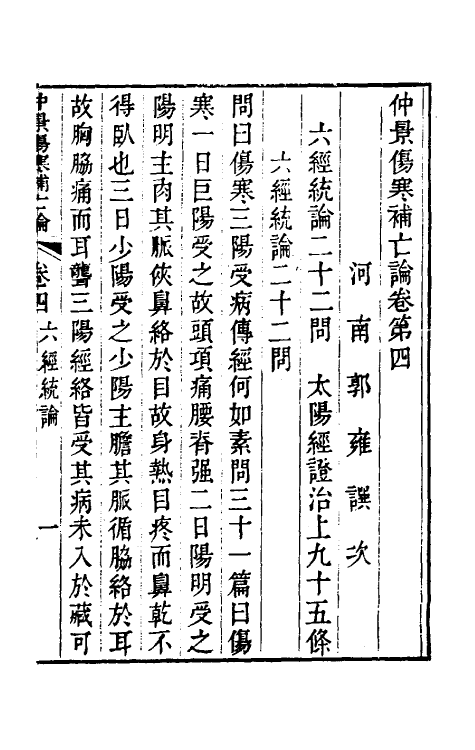 仲景傷寒補亡論卷第四
河南郭雍譔次
六經統論二十二問　太陽經證治上九十五條
六經統論二十二問
問曰傷寒三陽受病傳經何如素問三十一篇曰傷
寒一日巨陽受之故頭項痛腰脊强二日陽明受之
陽明主肉其脈俠鼻絡於目故身熱目疼而鼻乾不
得臥也三日少陽受之少陽主膽其脈循脇絡於耳
故胸脇痛而耳聾三陽經絡皆受其病未入於藏可
仲景傷寒補亡論　卷四　六經統論　一